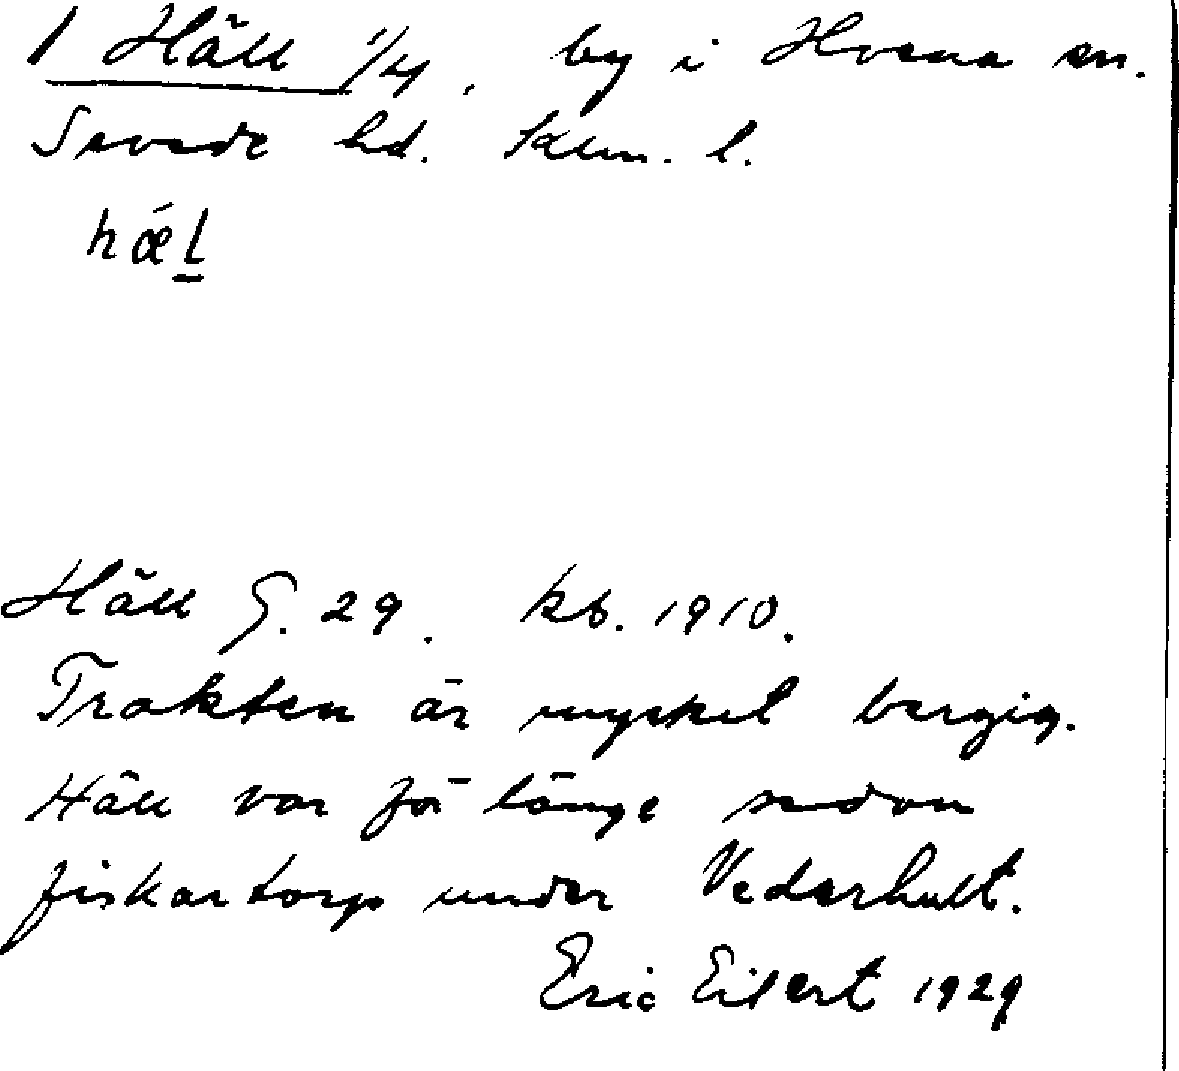 1 Häll 1/4, by i Hvena sn.
Sevede hd. Kalm. l.
hǽl̲
Häll G. 29. kb. 1910.
Trakten är mycket bergig.
Häll var för länge sedan
fiskartorp under Vederhult.
Eric Eilert 1929